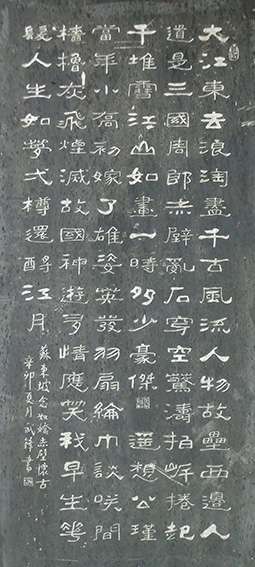 大江東去浪淘盡千古風流人物故壘西邊人
道是三國周郎赤壁亂石穿空驚濤拍岸捲起
千堆雪江山如畫一時多少豪傑 遥想公瑾
當年小喬初嫁了雄姿英發羽扇綸巾談咲間
檣櫓灰飛煙滅故國神遊多情應笑我早生華
髮人生如夢弌樽還酹江月
蘇東坡念奴嬌赤壁懷古
辛卯夏月